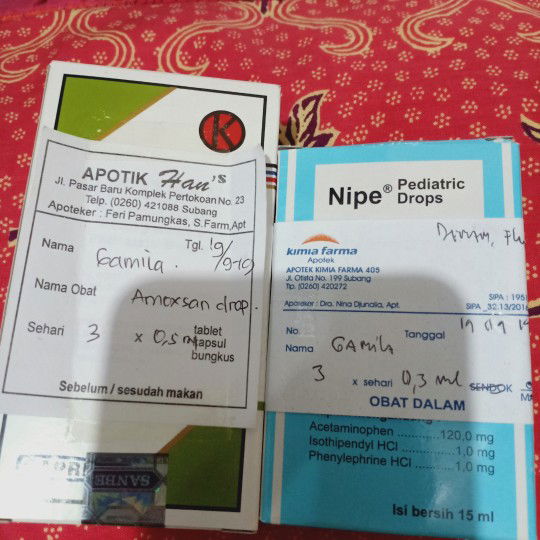 K
APOTIK Han's
Jl. Pasar Baru Komplek Pertokoan No. 23
Telp. (0260) 421088 Subang
Apoteker : Feri Pamungkas, S.Farm,Apt
Nama Gamila. Tgl. 19/9-19
Nama Obat Amoxsan drop.
Sehari 3 x 0,5 ml tablet
kapsul
bungkus
Sebelum / sesudah makan
SANBE
Nipe® Pediatric
Drops
kimia farma
Apotek
APOTEK KIMIA FARMA 405
Jl. Otista No. 199 Subang
Tlp. (0260) 420272
Apoteker : Dra. Nina Djunalia, Apt.
SIPA : 195
SIPA _32.13/201
No. Tanggal 19 09 19
Nama GAMILA
3 x sehari 0,3 ml SENDOK
OBAT DALAM
Acetaminophen ............. 120,0 mg
Isothipendyl HCl ........... 1,0 mg
Phenylephrine HCl ........ 1,0 mg
Isi bersih 15 ml